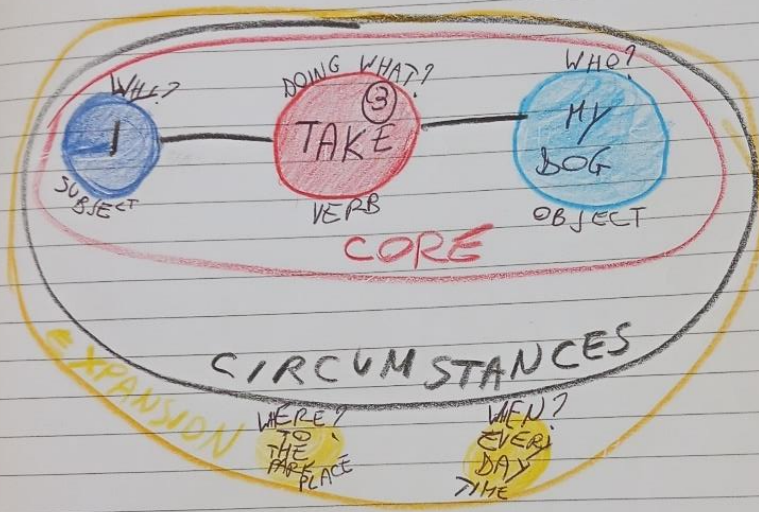 WHO?
I
SUBJECT
DOING WHAT?
③
TAKE
VERB
WHO?
MY
DOG
OBJECT
CORE
CIRCUMSTANCES
EXPANSION
WHERE?
TO
THE
PARK
PLACE
WHEN?
EVERY
DAY
TIME